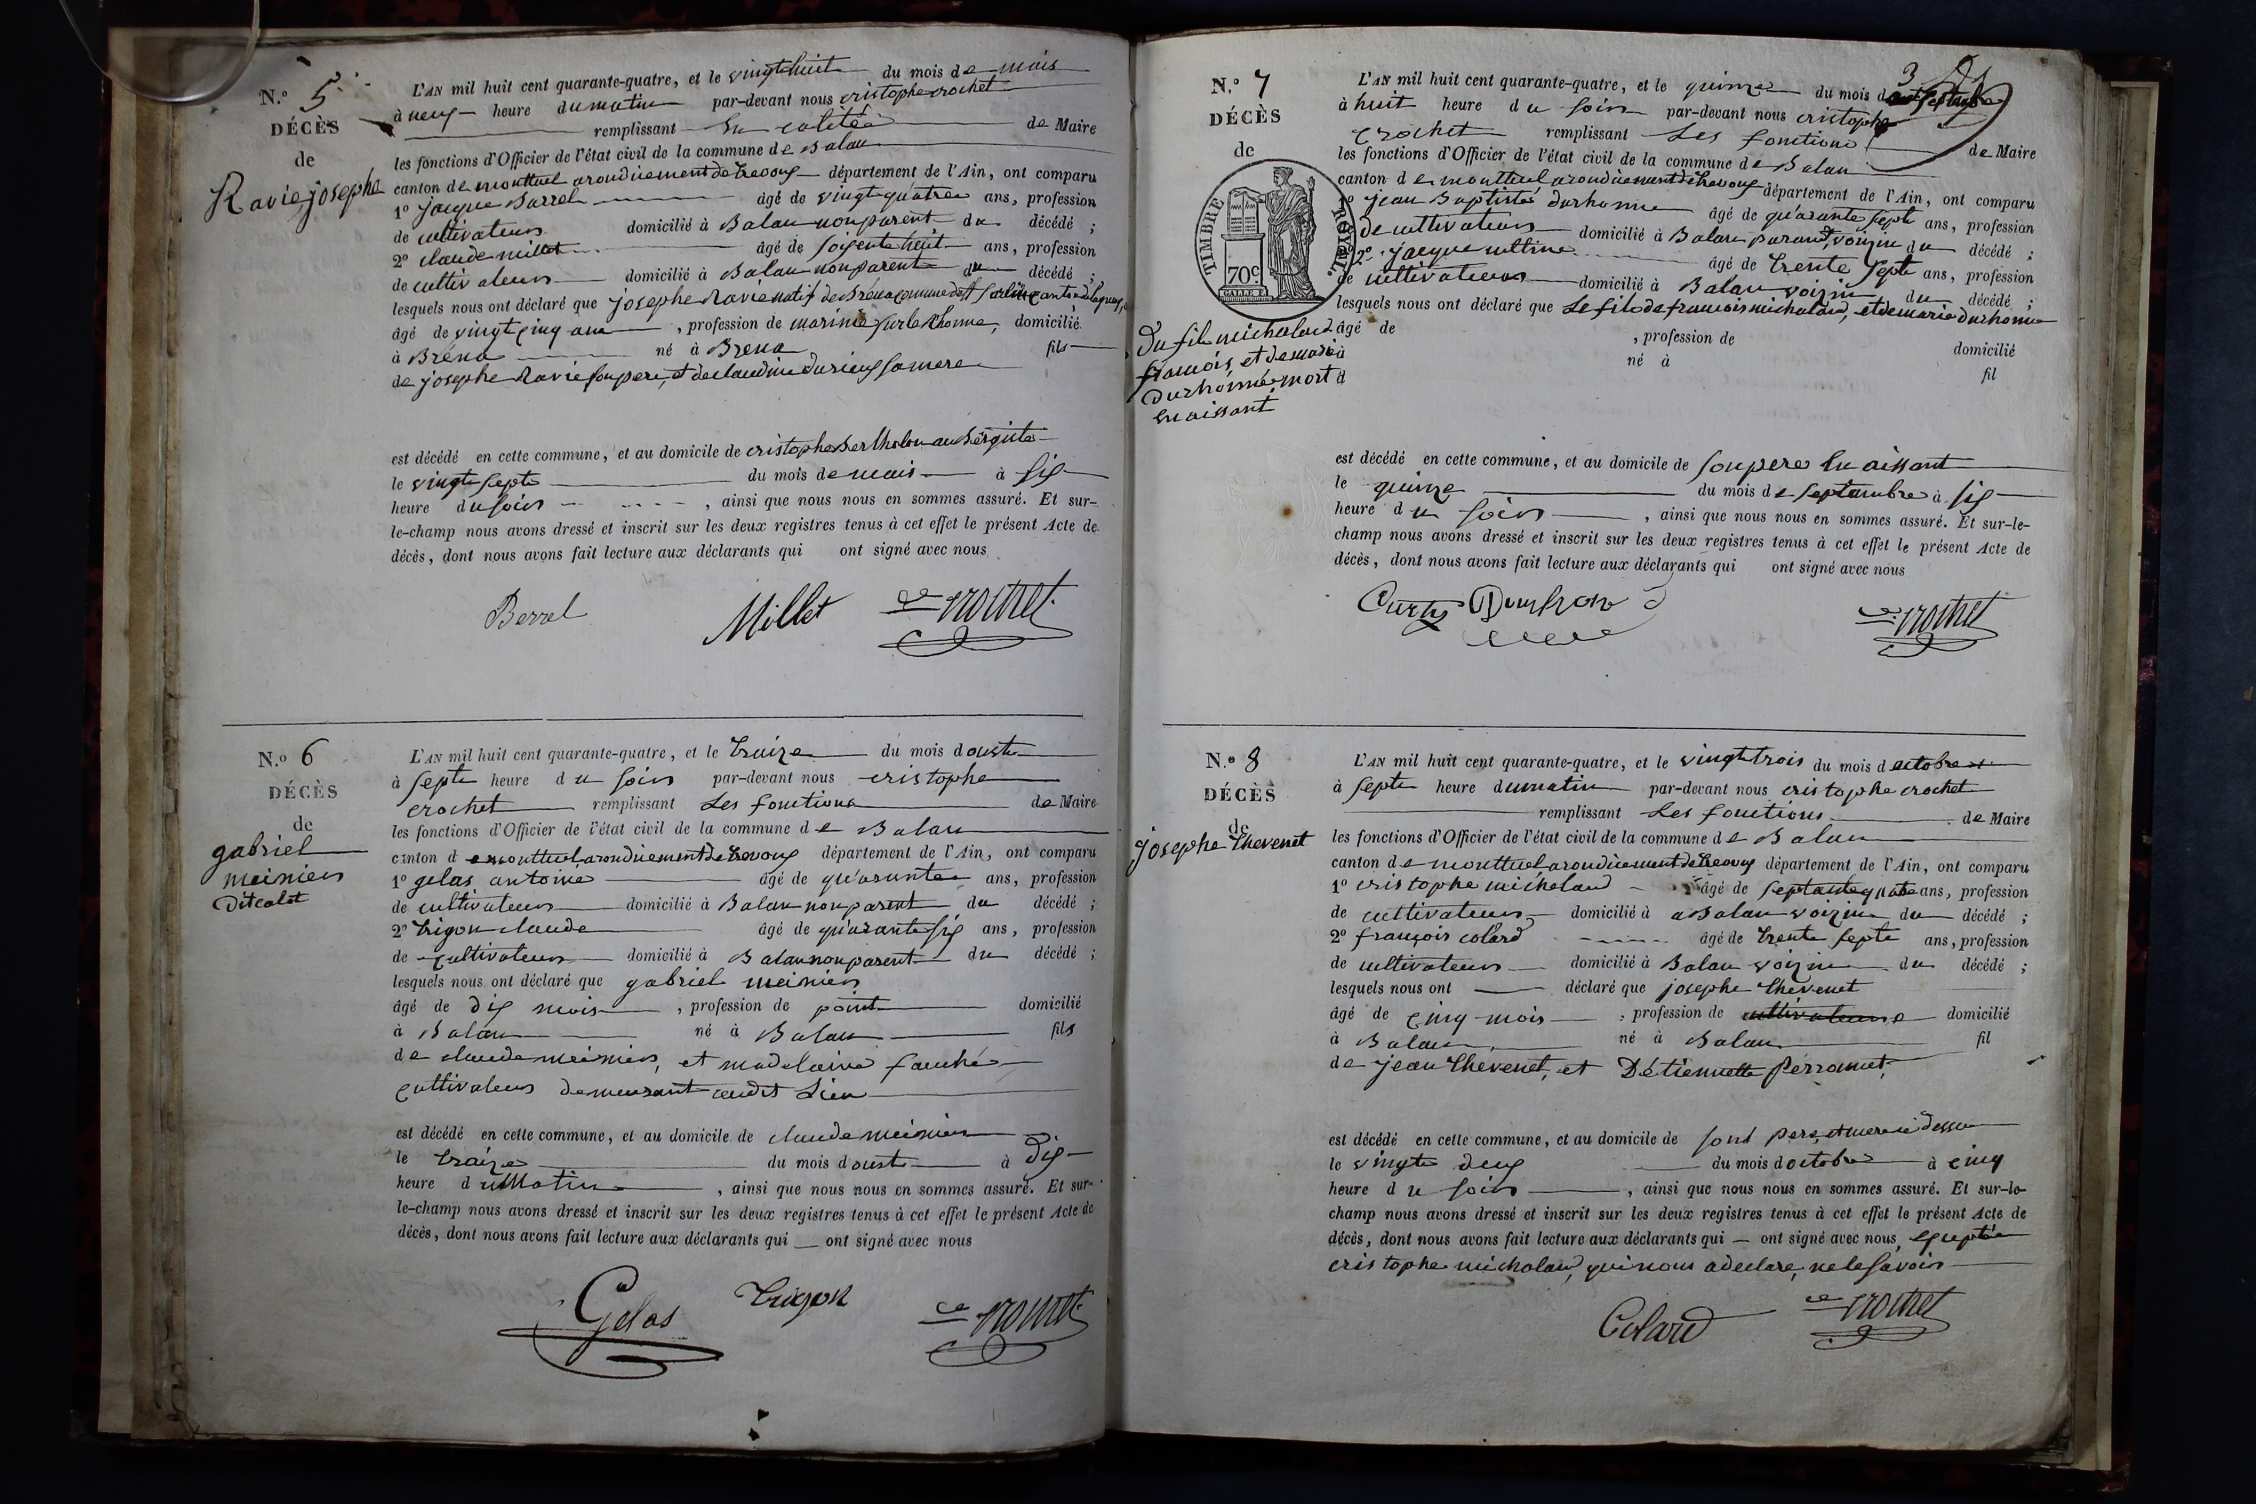 N.º 5
DÉCÈS
de
Ravie josephe
L'AN mil huit cent quarante-quatre, et le vingt huit du mois de mais
à neuf heure du matin par-devant nous cristophe crochet
remplissant en calité de Maire
les fonctions d'Officier de l'état civil de la commune de Balan
canton de monttuel arondicement de trevoux département de l'Ain, ont comparu
1º jacque Barrel âgé de vingt quatre ans, profession
de cultivateur domicilié à Balan non parent du décédé ;
2º claude millet âgé de soisente huit ans, profession
de cultivateur domicilié à Balan non parent du décédé ;
lesquels nous ont déclaré que josephe Ravie natif de Bréna commune de St canton de
âgé de vingt cinq ans , profession de marinié sur le Rhonne, domicilié
à Bréna né à Brena fils
de josephe Ravie son pere, et de claudine durieux sa mere
est décédé en cette commune, et au domicile de cristophe Bertholon aubergiste
le vingt septe du mois de mais à six
heure du soir , ainsi que nous nous en sommes assuré. Et sur-
le-champ nous avons dressé et inscrit sur les deux registres tenus à cet effet le présent Acte de
décès, dont nous avons fait lecture aux déclarants qui ont signé avec nous
Berrel Millet ce crochet
N.º 6
DÉCÈS
de
gabriel
meinier
dit colet
L'AN mil huit cent quarante-quatre, et le traize du mois d'ouste
à septe heure du soir par-devant nous cristophe
crochet remplissant Les fonctions de Maire
les fonctions d'Officier de l'état civil de la commune de Balan
canton de monttuel arondicement de trevoux département de l'Ain, ont comparu
1º gelas antoine âgé de qu'arante ans, profession
de cultivateur domicilié à Balan non parent du décédé ;
2º trigon claude âgé de qu'arante six ans, profession
de cultivateur domicilié à Balan non parent du décédé ;
lesquels nous ont déclaré que gabriel meinier
âgé de dix mois , profession de point domicilié
à Balan né à Balan fils
de claude meinier, et madelaine fauché
cultivateur demeurant audit Lieu
est décédé en cette commune, et au domicile de claude meinier
le traize du mois d'ouste à dix
heure du Matin , ainsi que nous nous en sommes assuré. Et sur-
le-champ nous avons dressé et inscrit sur les deux registres tenus à cet effet le présent Acte de
décès, dont nous avons fait lecture aux déclarants qui ont signé avec nous
Gelas trigon ce crochet
3
N.º 7
DÉCÈS
de
TIMBRE ROYAL.
70c
Du fil michaland
francois, et de marie
Durhonne mort
en naissant
L'AN mil huit cent quarante-quatre, et le quinze du mois d septembre
à huit heure du soir par-devant nous cristophe
crochet remplissant Les fonctions de Maire
les fonctions d'Officier de l'état civil de la commune de Balan
canton de monttuel arondicement de trevoux département de l'Ain, ont comparu
1º jean Baptiste durhonne âgé de qu'arante septe ans, profession
de cultivateur domicilié à Balan parant, voizin du décédé ;
2º jacque âgé de trente septe ans, profession
de cultivateur domicilié à Balan voizin du décédé ;
lesquels nous ont déclaré que Le fils de francois michaland, et de marie durhonne
âgé de , profession de domicilié
à né à fil
d
est décédé en cette commune, et au domicile de son pere En naissant
le quinze du mois de septembre à six
heure du soir , ainsi que nous nous en sommes assuré. Et sur-le-
champ nous avons dressé et inscrit sur les deux registres tenus à cet effet le présent Acte de
décès, dont nous avons fait lecture aux déclarants qui ont signé avec nous
ce crochet
N.º 8
DÉCÈS
de
josephe thevenet
L'AN mil huit cent quarante-quatre, et le vingt trois du mois d'octobre
à septe heure du matin par-devant nous cristophe crochet
remplissant Les fonctions de Maire
les fonctions d'Officier de l'état civil de la commune de Balan
canton de monttuel arondicement de trevoux département de l'Ain, ont comparu
1º cristophe michaland âgé de septante quatre ans, profession
de cultivateur domicilié à a Balan voizin du décédé ;
2º françois colard âgé de trente septe ans, profession
de cultivateur domicilié à Balan voizin du décédé ;
lesquels nous ont déclaré que josephe thevenet
âgé de cinq mois , profession de cultivateur domicilié
à Balan né à Balan fil
de jean thevenet, et D'étiennette perramet,
est décédé en cette commune, et au domicile de sont pere, et mere ci dessu
le vingte deux du mois d'octobre à cinq
heure du soir , ainsi que nous nous en sommes assuré. Et sur-le-
champ nous avons dressé et inscrit sur les deux registres tenus à cet effet le présent Acte de
décès, dont nous avons fait lecture aux déclarants qui ont signé avec nous, exceptée
cristophe michaland, qui nous a declare, ne le savoir
Colard ce crochet